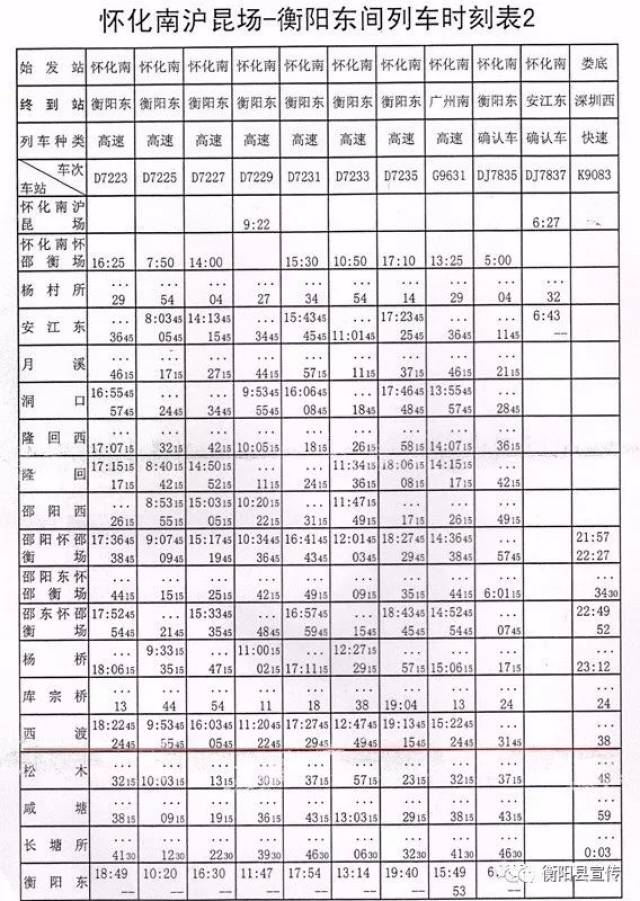 怀化南沪昆场-衡阳东间列车时刻表2
始发站 怀化南 怀化南 怀化南 怀化南 怀化南 怀化南 怀化南 怀化南 怀化南 怀化南 娄底
终到站 衡阳东 衡阳东 衡阳东 衡阳东 衡阳东 衡阳东 衡阳东 广州南 衡阳东 安江东 深圳西
列车种类 高速 高速 高速 高速 高速 高速 高速 高速 确认车 确认车 快速
车次
车站 D7223 D7225 D7227 D7229 D7231 D7233 D7235 G9631 DJ7835 DJ7837 K9083
怀化南沪
昆场 9:22 6:27
怀化南怀
邵衡场 16:25 7:50 14:00 15:30 10:50 17:10 13:25 5:00
... ... ... ... ... ... ... ... ... ...
杨村所 29 54 04 27 34 54 14 29 04 32
... 8:0345 14:1345 ... 15:4345 ... 17:2345 ... ... 6:43
安江东 3645 0545 1545 3445 4545 11:0145 2545 3645 1145 --
... ... ... ... ... ... ... ... ...
月溪 4615 1715 2715 4415 5715 1115 3715 4615 2115
16:5545 ... ... 9:5345 16:0645 ... 17:4645 13:5545 ...
洞口 5745 2445 3445 5545 0845 1845 4845 5745 2845
... ... ... ... ... ... ... ... ...
隆回西 17:0715 3215 4215 10:0515 1815 2615 5815 14:0715 3615
17:1515 8:4015 14:5015 ... ... 11:3415 18:0615 14:1515 ...
隆回 1715 4215 5215 1115 2415 3615 0815 1715 4215
... 8:5315 15:0315 10:2015 ... 11:4715 ... ... ...
邵阳西 2615 5515 0515 2215 3115 4915 1715 2615 4915
邵阳怀邵 17:3645 9:0745 15:1745 10:3445 16:4145 12:0145 18:2745 14:3645 ... 21:57
衡场 3845 0945 1945 3645 4345 0345 2945 3845 5745 22:27
邵阳东怀 ... ... ... ... ... ... ... ... ... ...
邵衡场 4415 1515 2515 4215 4915 0915 3515 4415 6:0115 3430
邵东怀邵 17:5245 ... 15:3345 ... 16:5745 ... 18:4345 14:5245 ... 22:49
衡场 5445 2145 3545 4845 5945 1545 4545 5445 0745 52
... 9:3315 ... 11:0015 ... 12:2715 ... ... ... ...
杨桥 18:0615 3515 4715 0215 17:1115 2915 5715 15:0615 1715 23:12
... ... ... ... ... ... ... ... ... ...
库宗桥 13 44 54 11 18 38 19:04 13 24 24
18:2245 9:5345 16:0345 11:2045 17:2745 12:4745 19:1345 15:2245 ... ...
西渡 2445 5545 0545 2245 2945 4945 1545 2445 3145 38
... ... ... ... ... ... ... ... ... ...
松木 3215 10:0315 1315 3015 3715 5715 2315 3215 3715 48
... ... ... ... ... ... ... ... ... ...
咸塘 3815 0915 1915 3615 4315 13:0315 2915 3815 4315 59
... ... ... ... ... ... ... ... ... ...
长塘所 4130 1230 2230 3930 4630 0630 3230 4130 4630 0:03
衡阳东 18:49 10:20 16:30 11:47 17:54 13:14 19:40 15:49
-- -- -- -- -- -- -- 53
衡阳县宣传